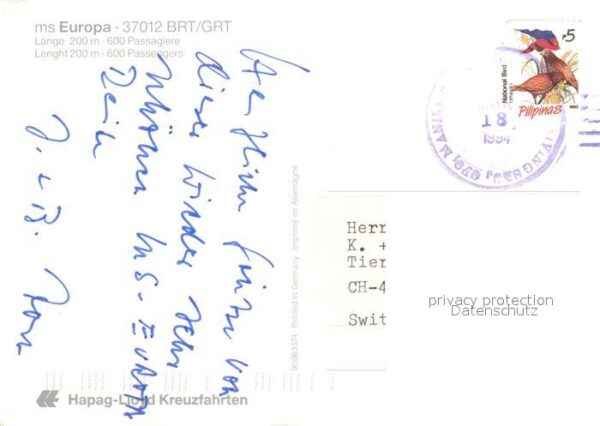 ms Europa · 37012 BRT/GRT
Länge 200 m · 600 Passagiere
Lenght 200 m · 600 Passengers
Herzliche Grüße von
dieser wieder sehr
schönen MS-EUROPA
Reise
J. + B.
90063574 · Printed in Germany · Imprimé en Allemagne
₱5
National Bird
Pilipinas
18
1994
Herr
K. +
Tier
CH-4
Swit
privacy protection
Datenschutz
Hapag-Lloyd Kreuzfahrten